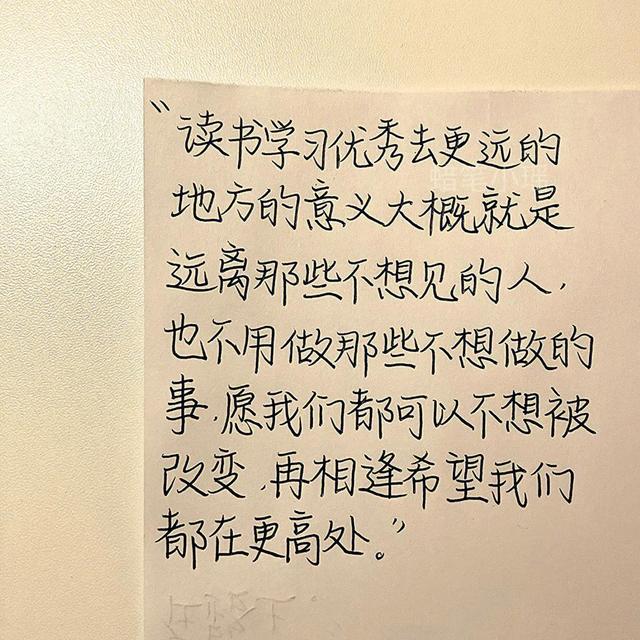 “读书学习优秀去更远的
地方的意义大概就是
远离那些不想见的人，
也不用做那些不想做的
事，愿我们都可以不想被
改变，再相逢希望我们
都在更高处。”